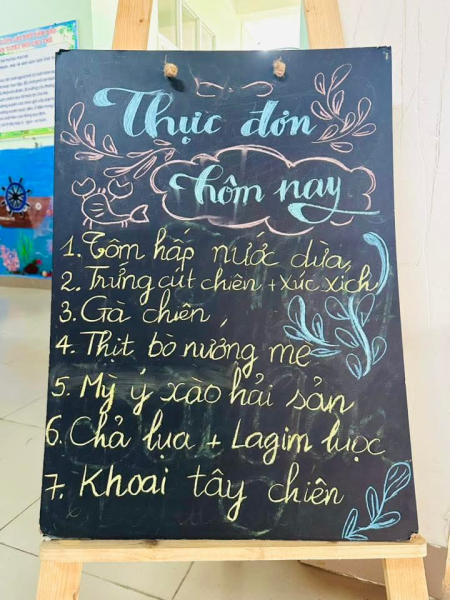 Thực đơn
hôm nay
1. Tôm hấp nước dừa
2. Trứng cút chiên + xúc xích
3. Gà chiên
4. Thịt bò nướng mẹ
5. Mỳ ý xào hải sản
6. Chả lụa + Lagim luộc
7. Khoai tây chiên